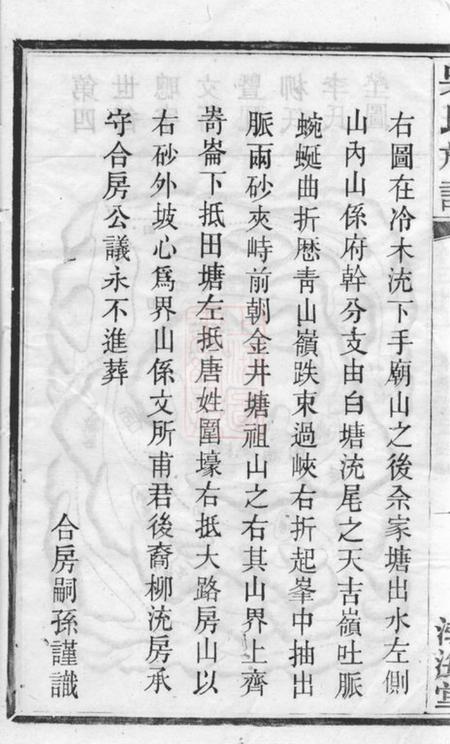 右圖在冷木㳘下手廟山之後余家塘出水左側
山內山係府幹分支由白塘㳘尾之天吉嶺吐脈
蜿蜒曲折歷青山嶺跌束過峽右折起峯中抽出
脈兩砂夾峙前朝金井塘祖山之右其山界上齊
嵜崙下抵田塘左抵唐姓圍壕右抵大路房山以
右砂外坡心爲界山係文所甫君後裔柳㳘房承
守合房公議永不進葬
合房嗣孫謹識